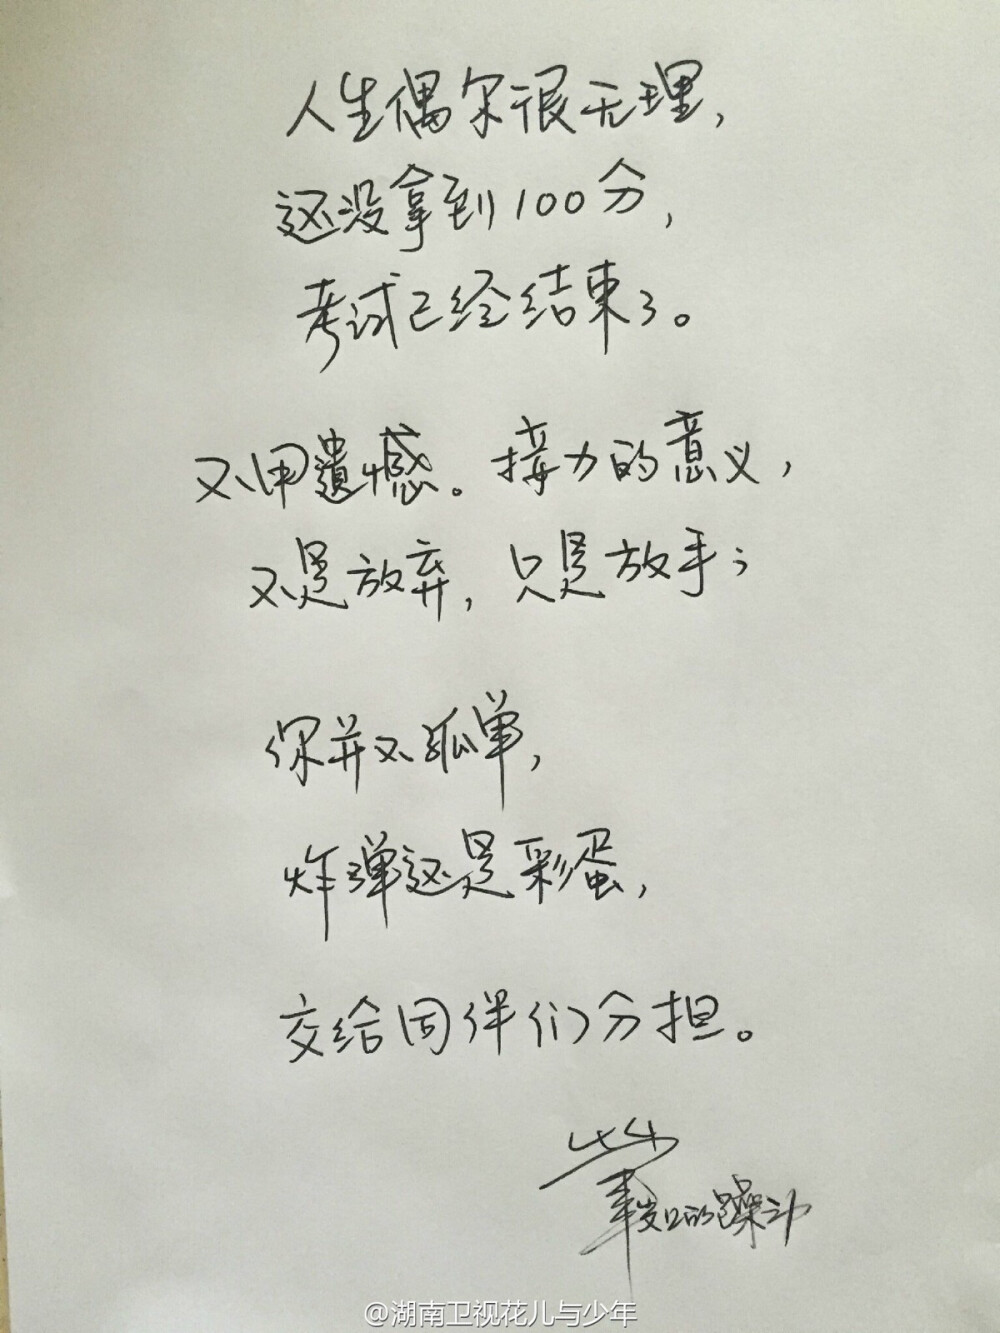 人生偶尔很无理，
还没拿到100分，
考试已经结束了。
不用遺憾。接力的意义，
不是放弃，只是放手；
你并不孤单，
炸弹还是彩蛋，
交给同伴们分担。
岁口的躁动
@湖南卫视花儿与少年